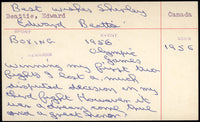 Best wishes Shirley
Beattie, Edward
Canada
Edward Beattie
SPORT
EVENT
YEAR
Boxing
1956
1956
Olympic
Games
Winning my first two
fights I lost a much
disputed decision in my
third fight. However it
was a lot of fun
and a great honor.